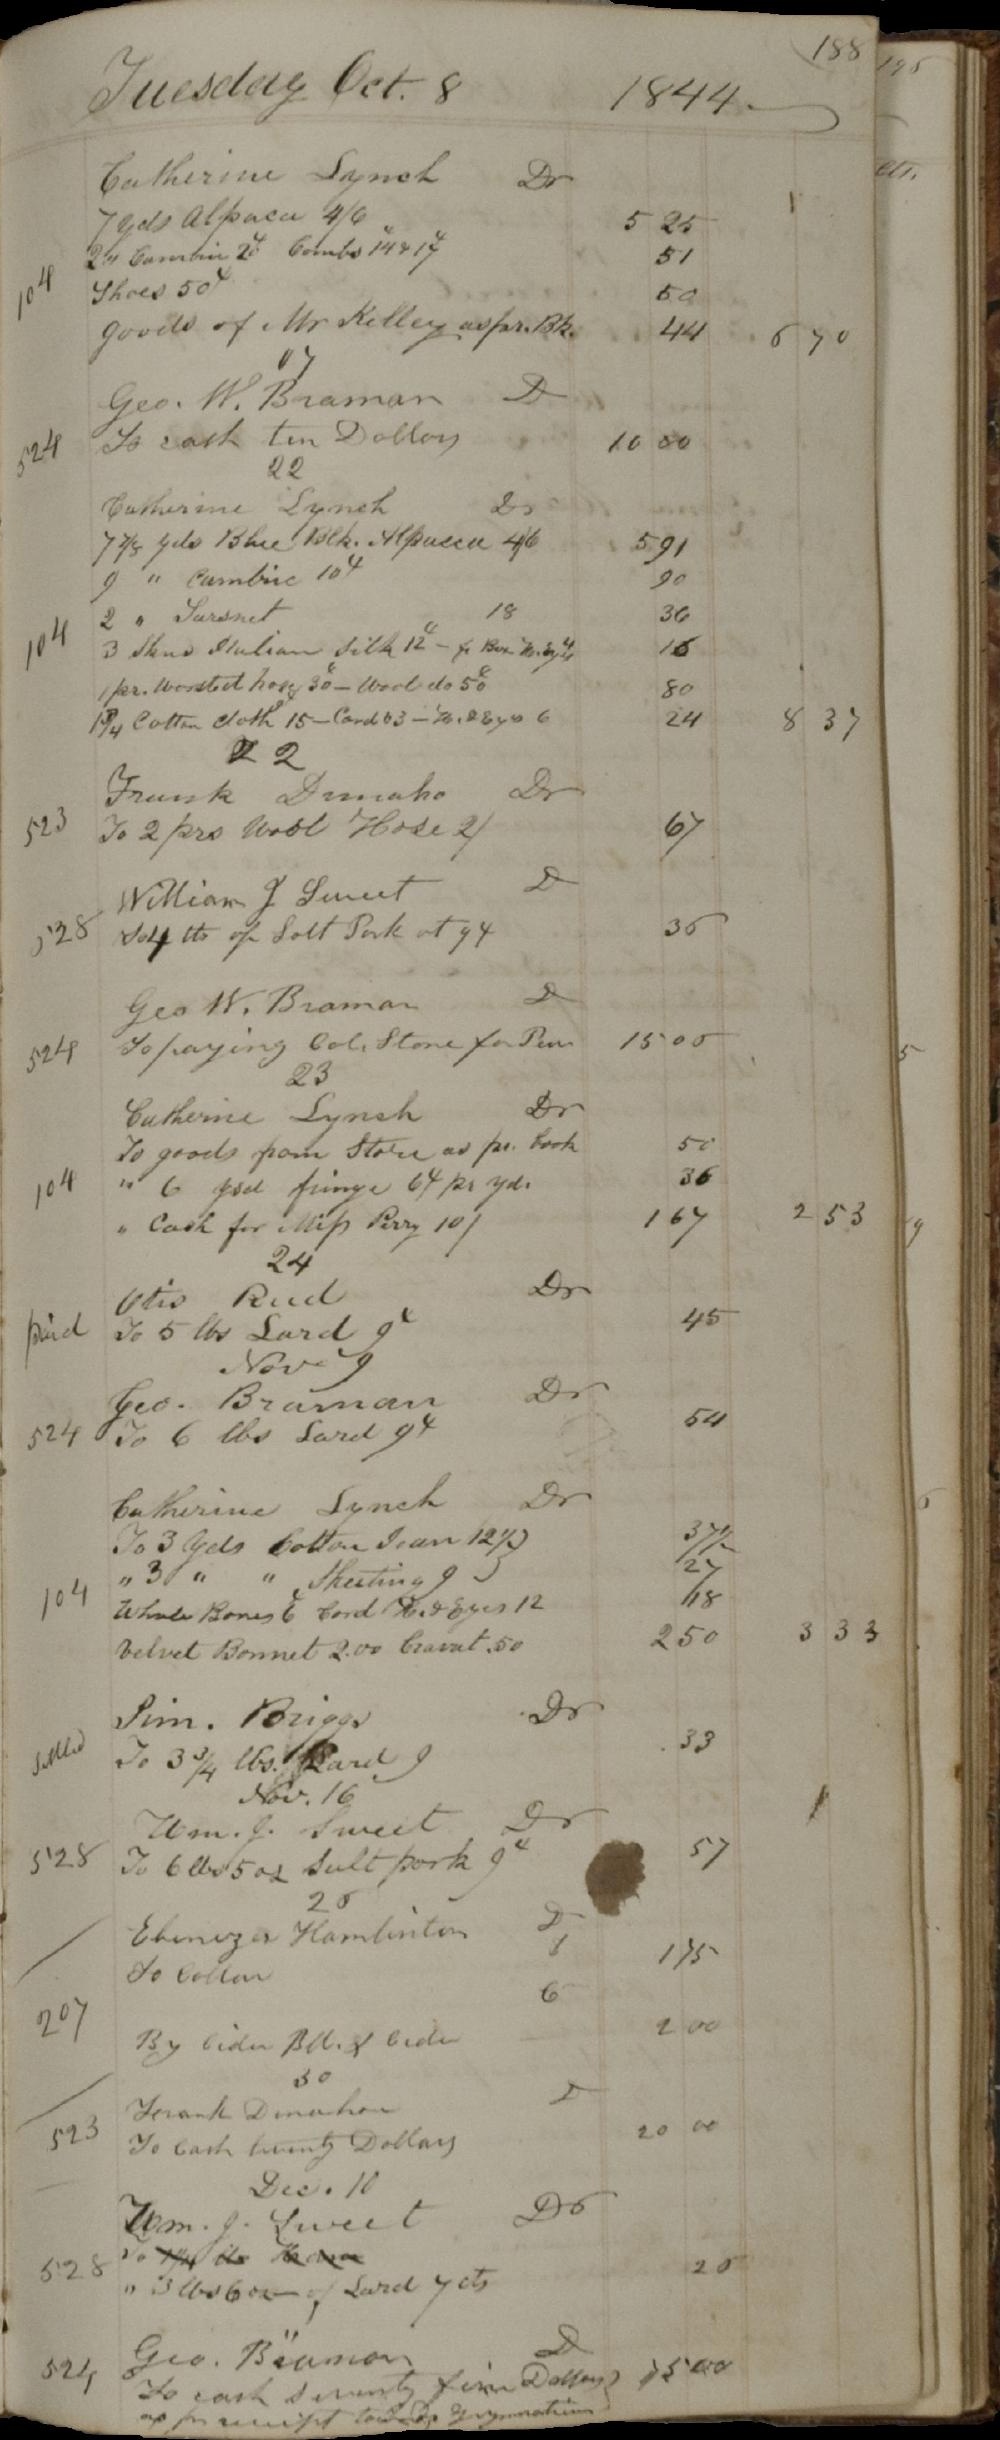 188
Tuesday Oct. 8 1844
Catherine Lynch Dr
7 yds Alpaca 4/6 5 25
Combs 14 & 17 51
104 Shoes 50 50
goods of Mr Kelley as pr. Bk. 44 6 70
Geo. W. Braman D
524 To cash ten Dollars 10 00
22
Catherine Lynch Dr
7 7/8 yds Blue Blk. Alpacca 4/6 5 91
9 " Cambric 10 90
104 2 " Sarsnet 18 36
3 Italian Silk 12 16
1 pr. Worsted hose 30 – Wool do 50 80
Cotton Cloth 15 – Card 03 – H. & Eyes 6 24 8 37
22
Frank Dunaho Dr
523 To 2 prs Wool Hose 2/ 67
William J Sweet D
528 To 4 lbs of Salt Pork at 9 36
Geo W. Braman D
524 To paying Col. Stone for 15 00
23
Catherine Lynch Dr
To goods from Store as pr. book 50
104 " 6 fringe 6 pr yd. 36
" Cash for Miss Perry 10/ 1 67 2 53
24
Otis Rud Dr
paid To 5 lbs Lard 9 45
Nov 9
Geo. Braman Dr
524 To 6 lbs Lard 9 54
Catherine Lynch Dr
To 3 yds Cotton Jean 12 1/2 37 1/2
" 3 " " Sheeting 9 27
104 Whale Bones 6 Cord H. & Eyes 12 18
Velvet Bonnet 2.00 Cravat .50 2 50 3 33
Sim. Briggs Dr
settled To 3 3/4 lbs. Lard 9 33
Nov. 16
Wm. J. Sweet Dr
528 To 6 lbs 5 oz Salt pork 9 57
Ebenezer Hamlinton D
To Collar 1 75
6
207 By Cider Bbl. & Cider 2 00
30
Frank Dunahoe D
523 To Cash twenty Dollars 20 00
Dec. 10
Wm. J. Sweet Dr
528
" 3 lbs 6 oz of Lard 7 cts
"
Geo. Braman D
524 To cash seventy five Dollars 75 00
as pr receipt